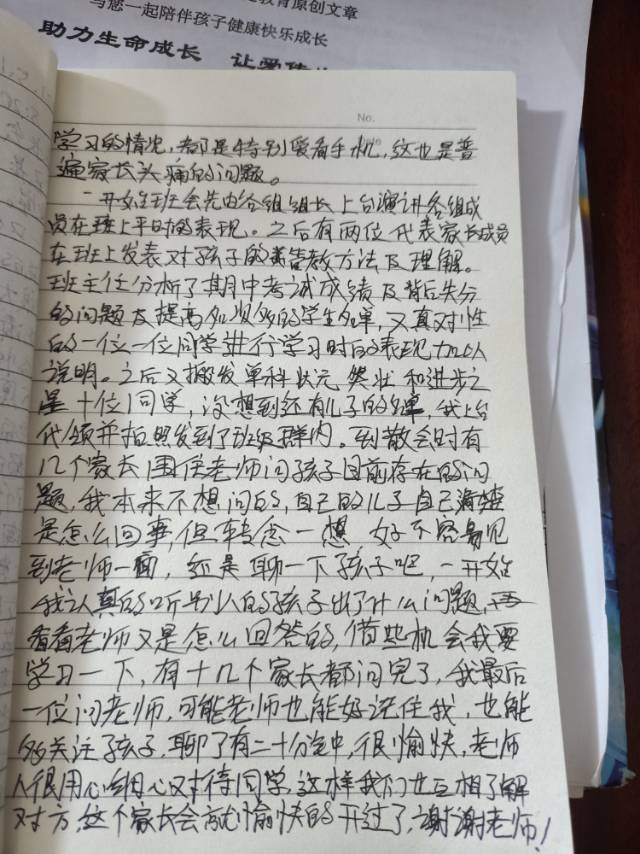 教育原创文章
与您一起陪伴孩子健康快乐成长
助力生命成长 让爱
No.
学习的情况，都是特别爱看手机，这也是普
遍家长头痛的问题。
一开始班会先由各组组长上台演讲各组成
员在班上平时的表现。之后有两位代表家长成员
在班上发表对孩子的教方法及理解。
班主任分析了其期中考试成绩及背后失分
的问题及提高的学生名单，又真对性
的一位一位同学进行学习时的表现加以
说明。之后又搬发单科状元 奖状 和进步之
星十位同学，没想到还有儿子的名单，我上台
代领并拍照发到了班级群内。到散会时有
几个家长围住老师问孩子目前存在的问
题，我本来不想问的，自己的儿子自己清楚
是怎么回事，但转念一想 好不容易见
到老师一面，还是聊一下孩子吧，一开始
我认真的听别人的孩子出了什么问题，再
看看老师又是怎么回答的，借些机会我要
学习一下，有十几个家长都问完了，我最后
一位问老师，可能老师也能好记住我，也能
够关注了孩子，聊了有二十分钟，很愉快，老师
人很用心细心对待同学，这样我们也互相了解
对方，这个家长会就愉快的开过了，谢谢老师！